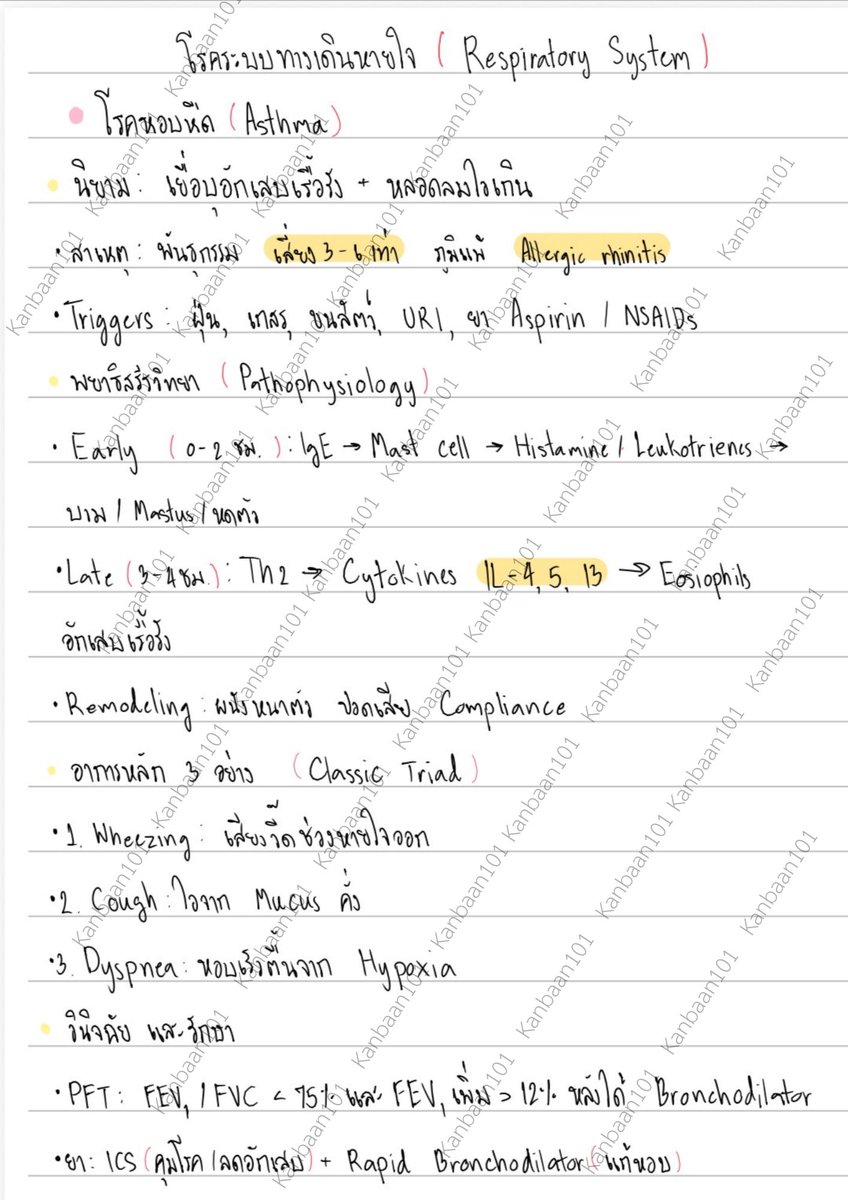 โรคระบบทางเดินหายใจ ( Respiratory System )
โรคหอบหืด ( Asthma )
นิยาม : เยื่อบุอักเสบเรื้อรัง + หลอดลมไวเกิน
• สาเหตุ : พันธุกรรม เสี่ยง 3-6 เท่า ภูมิแพ้ Allergic rhinitis
• Triggers : ฝุ่น, เกสร, ขนสัตว์, URI, ยา Aspirin / NSAIDs
พยาธิสรีรวิทยา ( Pathophysiology )
• Early ( 0-2 ชม. ) : IgE → Mast cell → Histamine / Leukotrienes →
บวม / Mastus / หดตัว
• Late ( 3-4 ชม. ) : Th2 → Cytokines IL-4, 5, 13 → Eosiophils
อักเสบเรื้อรัง
• Remodeling : ผนังหนาตัว ปอดเสีย Compliance
อาการหลัก 3 อย่าง ( Classic Triad )
• 1. Wheezing : เสียงวี๊ดช่วงหายใจออก
• 2. Cough : ไอจาก Mucus คั่ง
• 3. Dyspnea : หอบเร็วตื้นจาก Hypoxia
วินิจฉัย และรักษา
• PFT : FEV, / FVC < 75% และ FEV, เพิ่ม > 12% หลังได้ Bronchodilator
• ยา : ICS ( คุมโรค / ลดอักเสบ ) + Rapid Bronchodilator ( แก้หอบ )
Kanbaan101